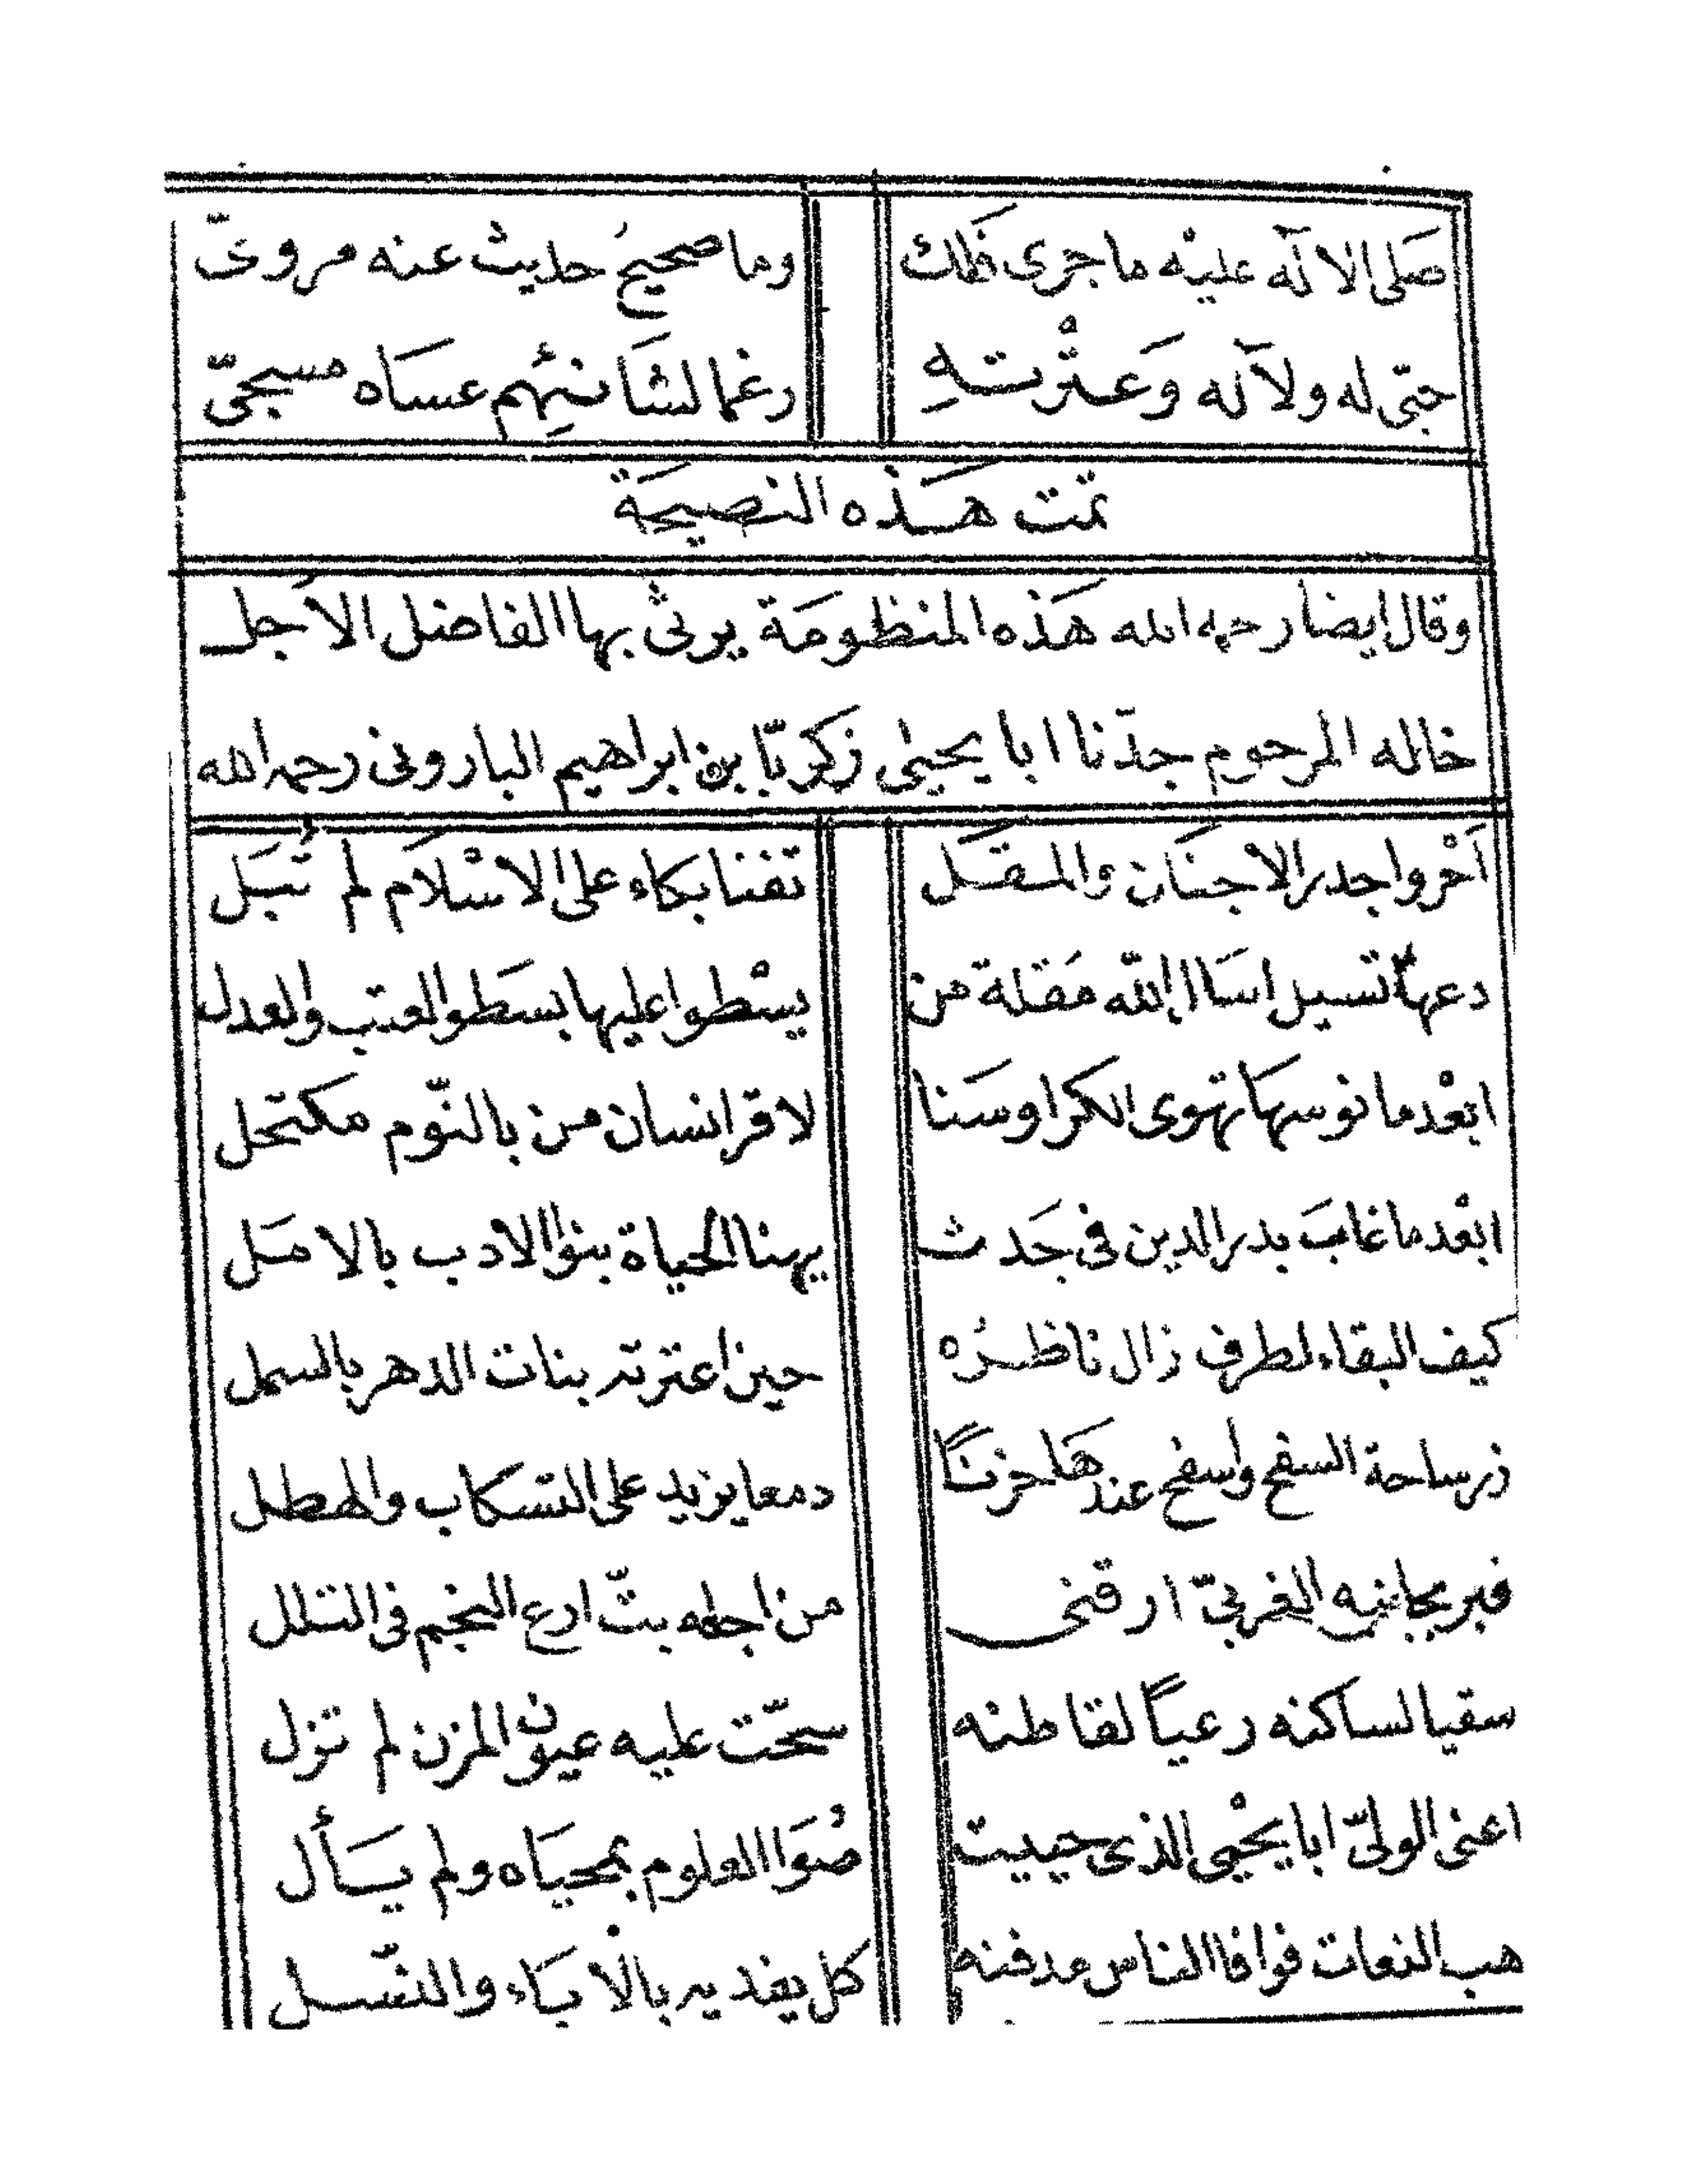 صَلى الالَه عليْه ما جرى فَلك وما صحيحُ حديث عنه مروىّ
حبّى له ولاَله وَعتْرتهِ رغما لشَانئِهم عسَاه مسبحىّ
تمت هَذه النصيحَة
وقال ايضا رحمه الله هَذه المنظومَة يرثى بها الفاضل الاَجل
خاله المرحوم جدّنا ابا يحيى زكريّا بن ابراهيم البارونى رحمه الله
اَحْر واجدر الاجنَان والمقَل تفنا بكاء على الاسْلاَم لم تُبَل
دعها تسيل اسَال الله مَقلة من يسْطوا عليها بسَطو العتب والعدل
ابعْد ما نوسهَا تهوى الكرا وسَنا لا قر انسان من بالنّوم مكتحل
ابعْد ما غابَ بدر الدين فى جَدث يهنا الحياة بنوا الادب بالامَل
كيف البقاء لطرف زال ناظرُه حين اعترته بنات الدهر بالسمل
زر ساحة السفح واسفح عندهَا حزنًا دمعا يزيد على التسكاب والهطل
قبر بجانبه الغربىّ ارقنى من اجله بتّ ارع النجم فى التلل
سقيا لساكنه رعيًا لقاطنه سحّت عليه عيون المزن لم تزل
اعنى الولىّ ابا يحْيى الذى حييت صُوَا العلوم بمحيَاه ولم يسَأل
هب النعات فوافا الناس مدفنه كل يفديه بالابَاء والنّسل